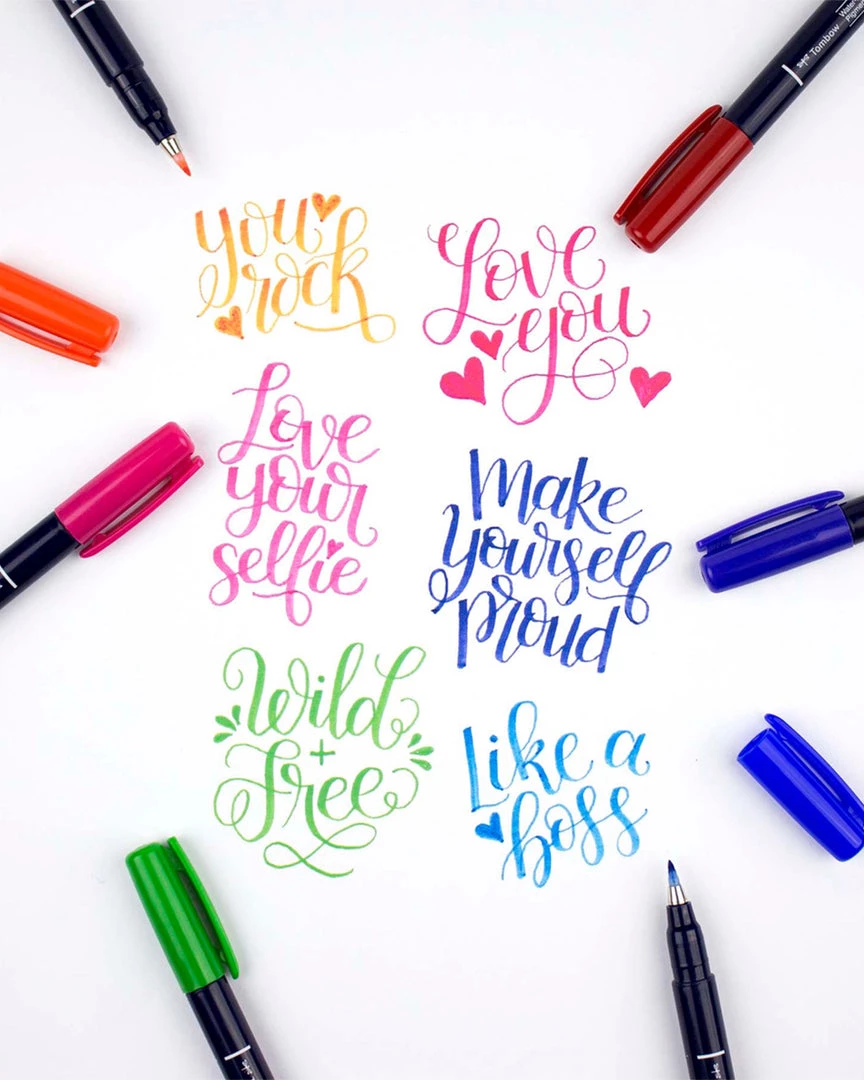 Tombow
you
rock
Love
you
Love
your
selfie
Make
yourself
proud
Wild
+
Free
Like a
boss